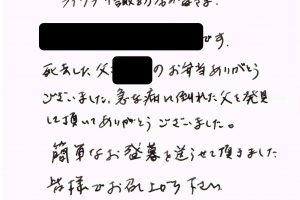 です。
死去した父 のお弁当ありがとう
ございました。急な病に倒れた父を発見
して頂いてありがとうございました。
簡単なお歳暮を送らせて頂きました
皆様でお召し上がり下さい